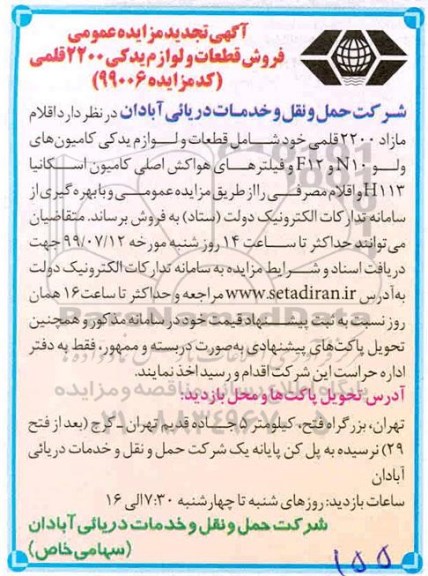 آگهی تجدید مزایده عمومی
فروش قطعات و لوازم یدکی ۲۲۰۰ قلمی
(کد مزایده ۹۹۰۰۶)
شرکت حمل و نقل و خدمات دریائی آبادان در نظر دارد اقلام
مازاد ۲۲۰۰ قلمی خود شامل قطعات و لوازم یدکی کامیون‌های
ولوو N10 و F12 و فیلترهای هواکش اصلی کامیون اسکانیا
H113 و اقلام مصرفی را از طریق مزایده عمومی و با بهره گیری از
سامانه تدارکات الکترونیک دولت (ستاد) به فروش برساند. متقاضیان
می‌توانند حداکثر تا ساعت ۱۴ روز شنبه مورخه ۹۹/۰۷/۱۲ جهت
دریافت اسناد و شرایط مزایده به سامانه تدارکات الکترونیک دولت
به آدرس www.setadiran.ir مراجعه و حداکثر تا ساعت ۱۶ همان
روز نسبت به ثبت پیشنهاد قیمت خود در سامانه مذکور و همچنین
تحویل پاکت‌های پیشنهادی به‌صورت دربسته و ممهور، فقط به دفتر
اداره حراست این شرکت اقدام و رسید اخذ نمایند.
آدرس تحویل پاکت‌ها و محل بازدید:
تهران، بزرگراه فتح، کیلومتر ۵ جاده قدیم تهران ـ کرج (بعد از فتح
۲۹) نرسیده به پل کن پایانه یک شرکت حمل و نقل و خدمات دریائی
آبادان
ساعات بازدید: روزهای شنبه تا چهارشنبه ۷:۳۰ الی ۱۶
شرکت حمل و نقل و خدمات دریائی آبادان
(سهامی خاص)
۱۵۵